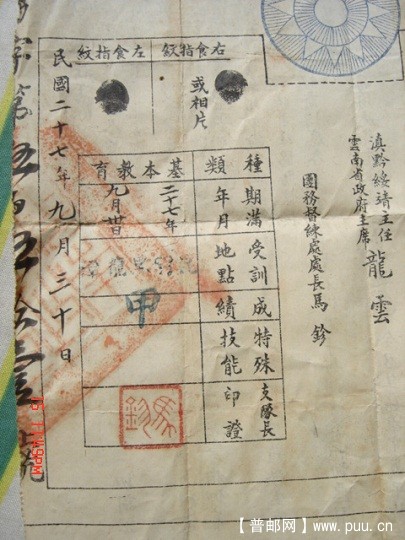 滇黔綏靖主任
雲南省政府主席
龍雲
團務督練處處長馬鉁
右食指紋
左食指紋
或相片
種類
期滿年月
受訓地點
成績
特殊技能
支隊長印證
基本教育
二十七年
九月卅日
甲
民國二十七年九月三十日
字第五百五拾壹號
【普邮网】www.puu.cn